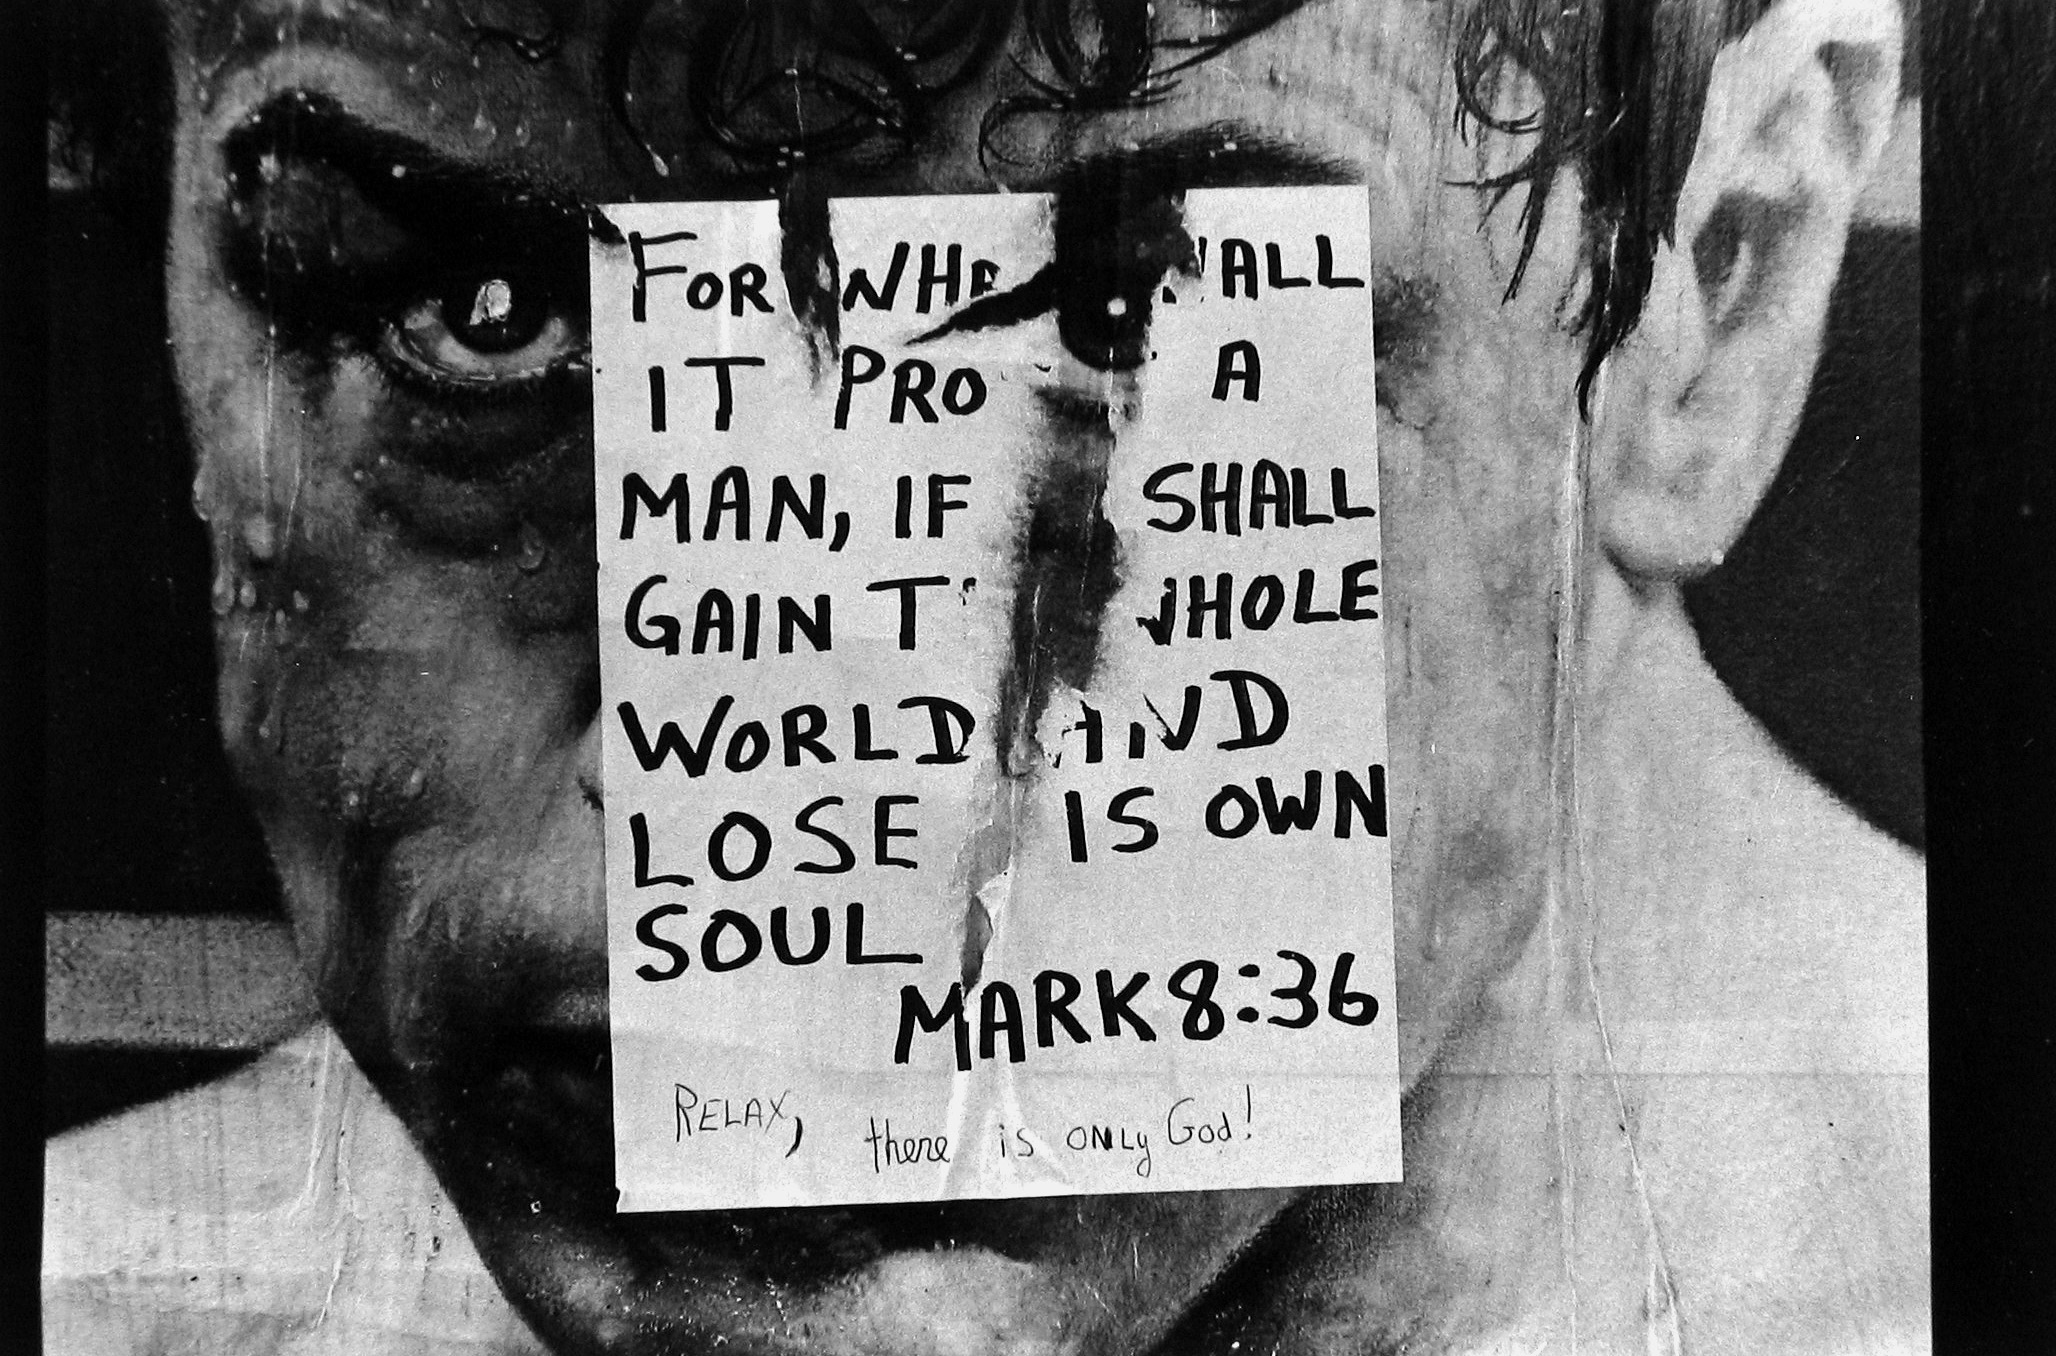 FOR WHA ALL
IT PRO A
MAN, IF SHALL
GAIN T WHOLE
WORLD AND
LOSE IS OWN
SOUL
MARK 8:36
RELAX, there is ONLy God!